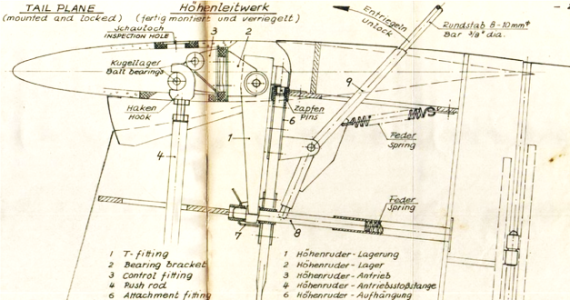 TAIL PLANE
(mounted and locked)
Höhenleitwerk
(fertig montiert und verriegelt)
Schauloch
INSPECTION HOLE
3
2
Kugellager
Ball bearings
Haken
Hook
Entriegeln
unlock
Rundstab 8-10mm⌀
Bar 3/8" dia.
9
Zapfen
Pins
6
1
4
Feder
Spring
Feder
Spring
7
8
1 T-fitting
2 Bearing bracket
3 Control fitting
4 Push rod
6 Attachment fitting
1 Höhenruder-Lagerung
2 Höhenruder-Lager
3 Höhenruder-Antrieb
4 Höhenruder-Antriebsstoßstange
6 Höhenruder-Aufhängung